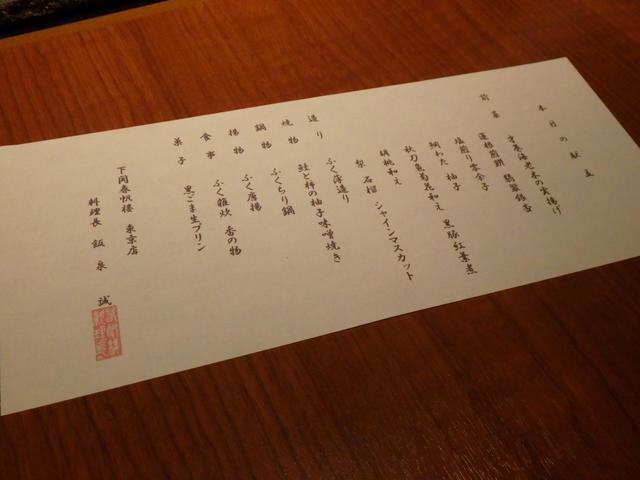 本日の献立
前菜
才巻海老木の実揚げ
蓮根煎餅 鶏醤銀杏
塩煎り零余子
鯛わた 柚子 黒豚紅葉煮
秋刀魚菊花和え
胡桃和え
梨 石榴 シャインマスカット
造り ふく薄造り
焼物 鮭と柿の柚子味噌焼き
鍋物 ふくちり鍋
揚物 ふく唐揚
食事 ふく雑炊 香の物
菓子 黒ごま生プリン
下関春帆楼 東京店
料理長 飯泉 誠